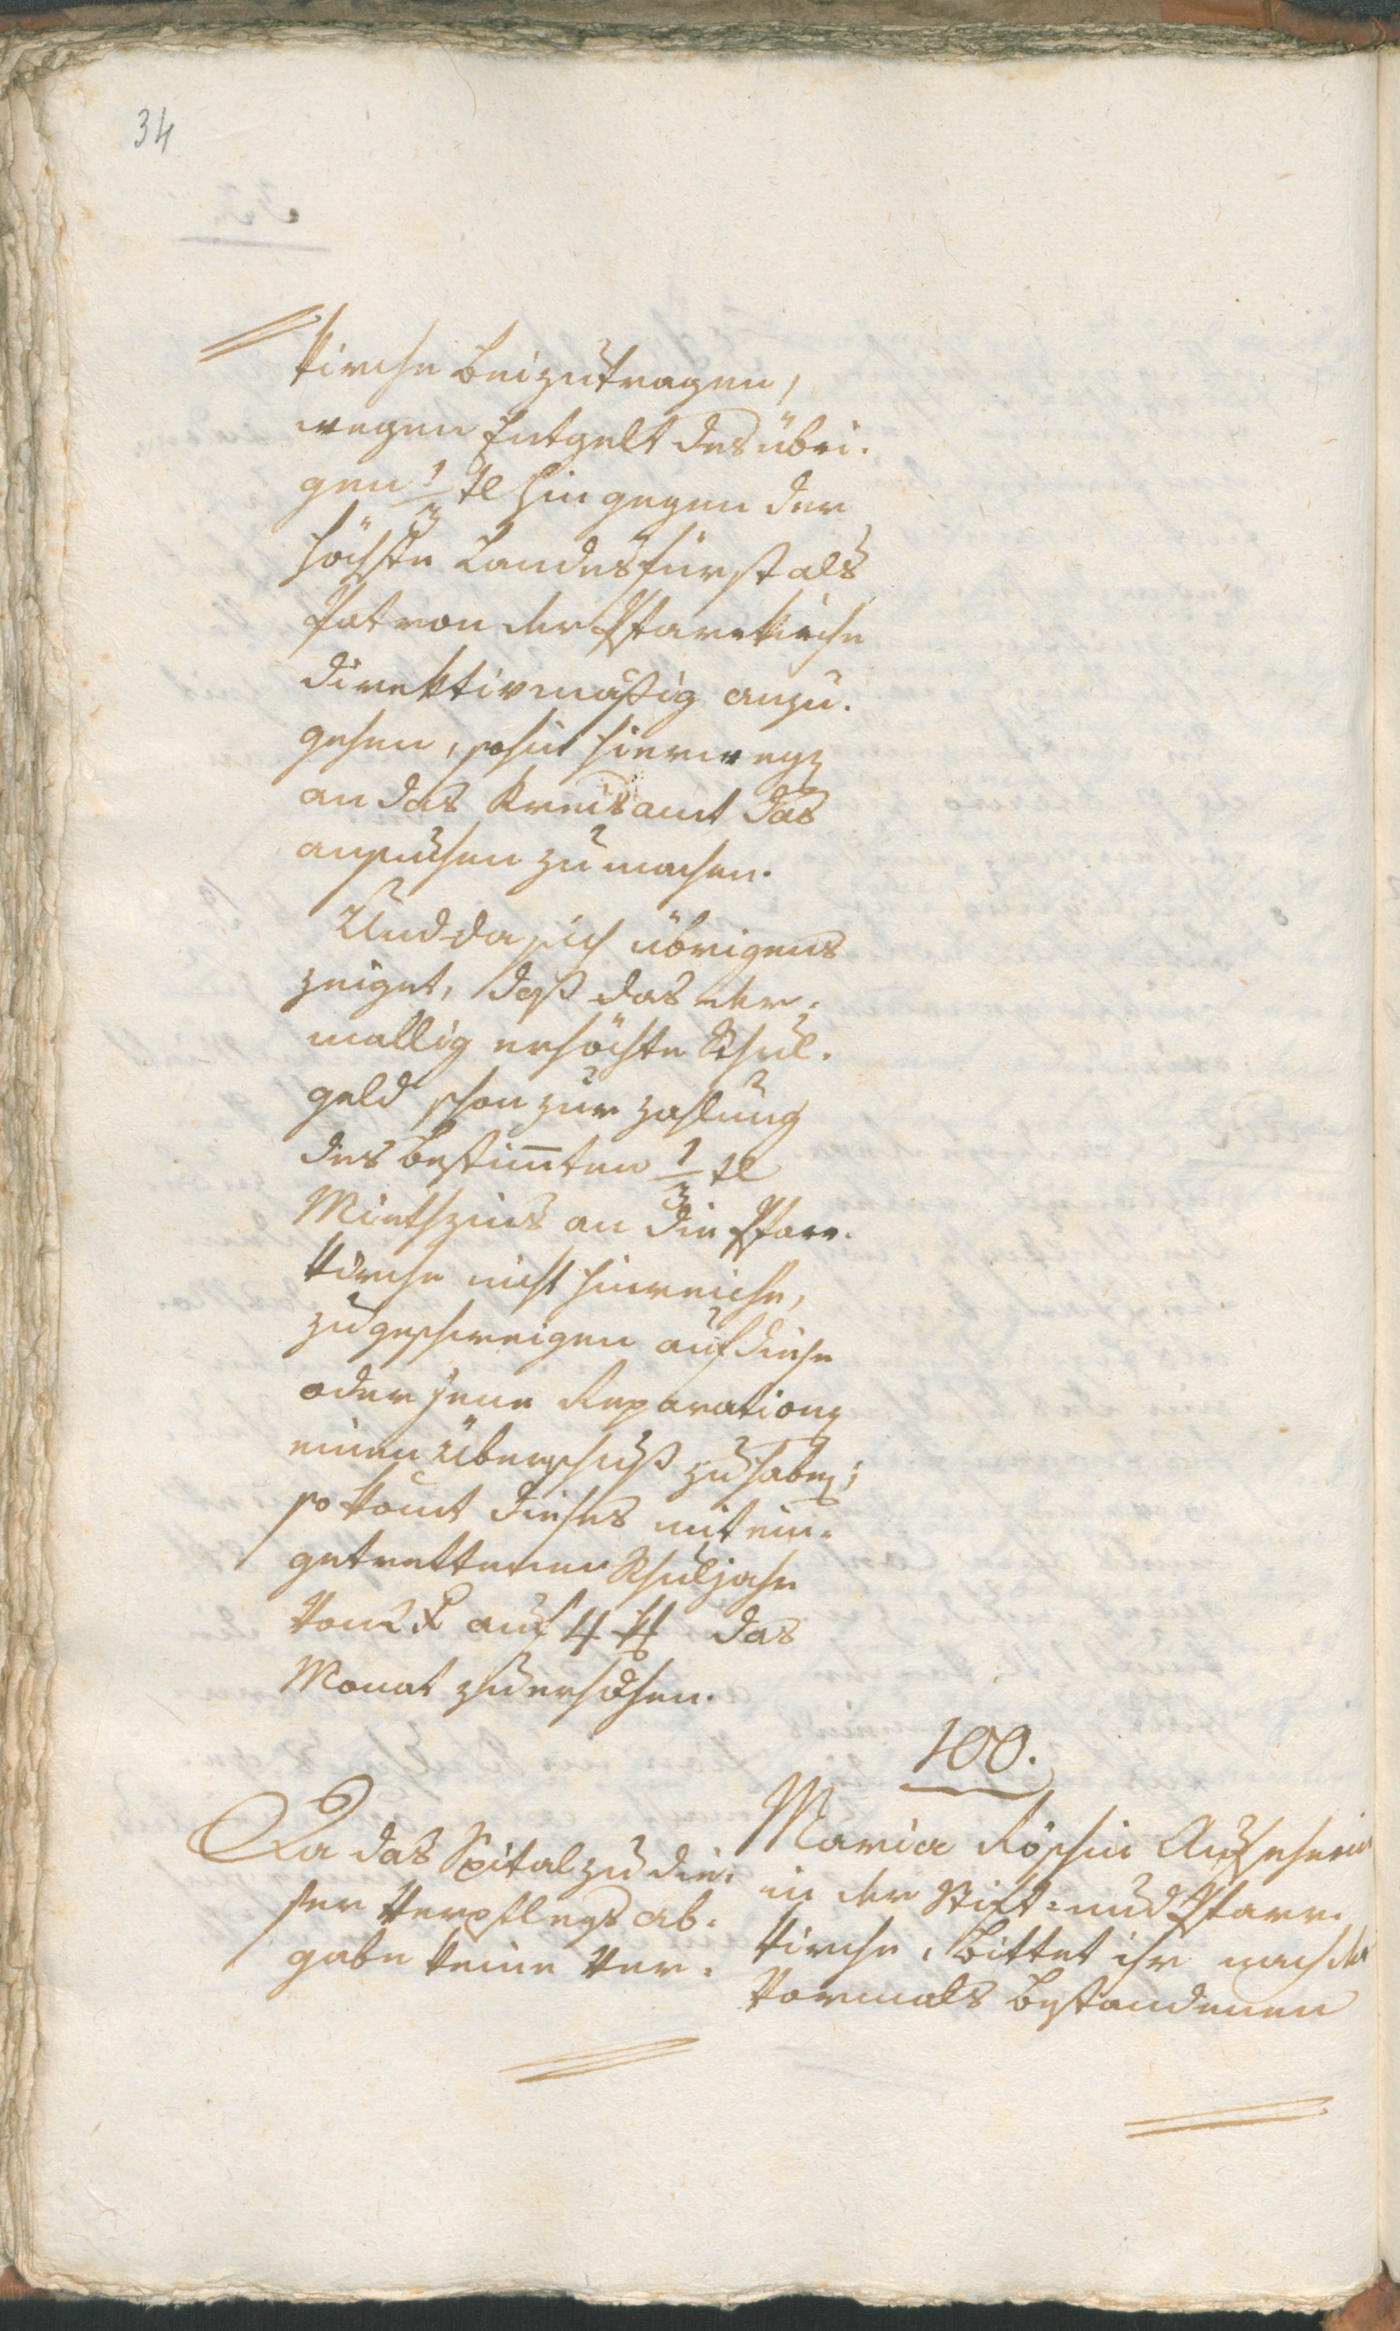 34
kirche beizutragen,
wegen Entgelt des übri-
gen 1/3 tl hingegen der
höchste Landesfürst als
Patron der Pfarrkirche
direktivmäßig anzu-
gehen, sohin hierweg
an das Kreisamt das
ansuchen zu machen.
Und da sich übrigens
zeiget, daß das der-
mallig erhöchte Schul-
geld schon zur zahlung
des bestimten 1/3 tl
Miethzins an die Pfarr-
kirche nicht hinreiche,
zugeschweigen auf diese
oder jene Reparationen
einen Überschuß zu haben;
so komt dieses mit ein-
gettrettenen Schuljahr
von 2 x auf 4 x das
Monat zu erhöhen.
100.
Da das Spital zu die-
ser Verpflegs ab-
gabe keine Ver-
Maria Röschin Aufseherin
in der Stift- und Pfarr-
kirche, bittet ihr nach der
vormals bestandenen